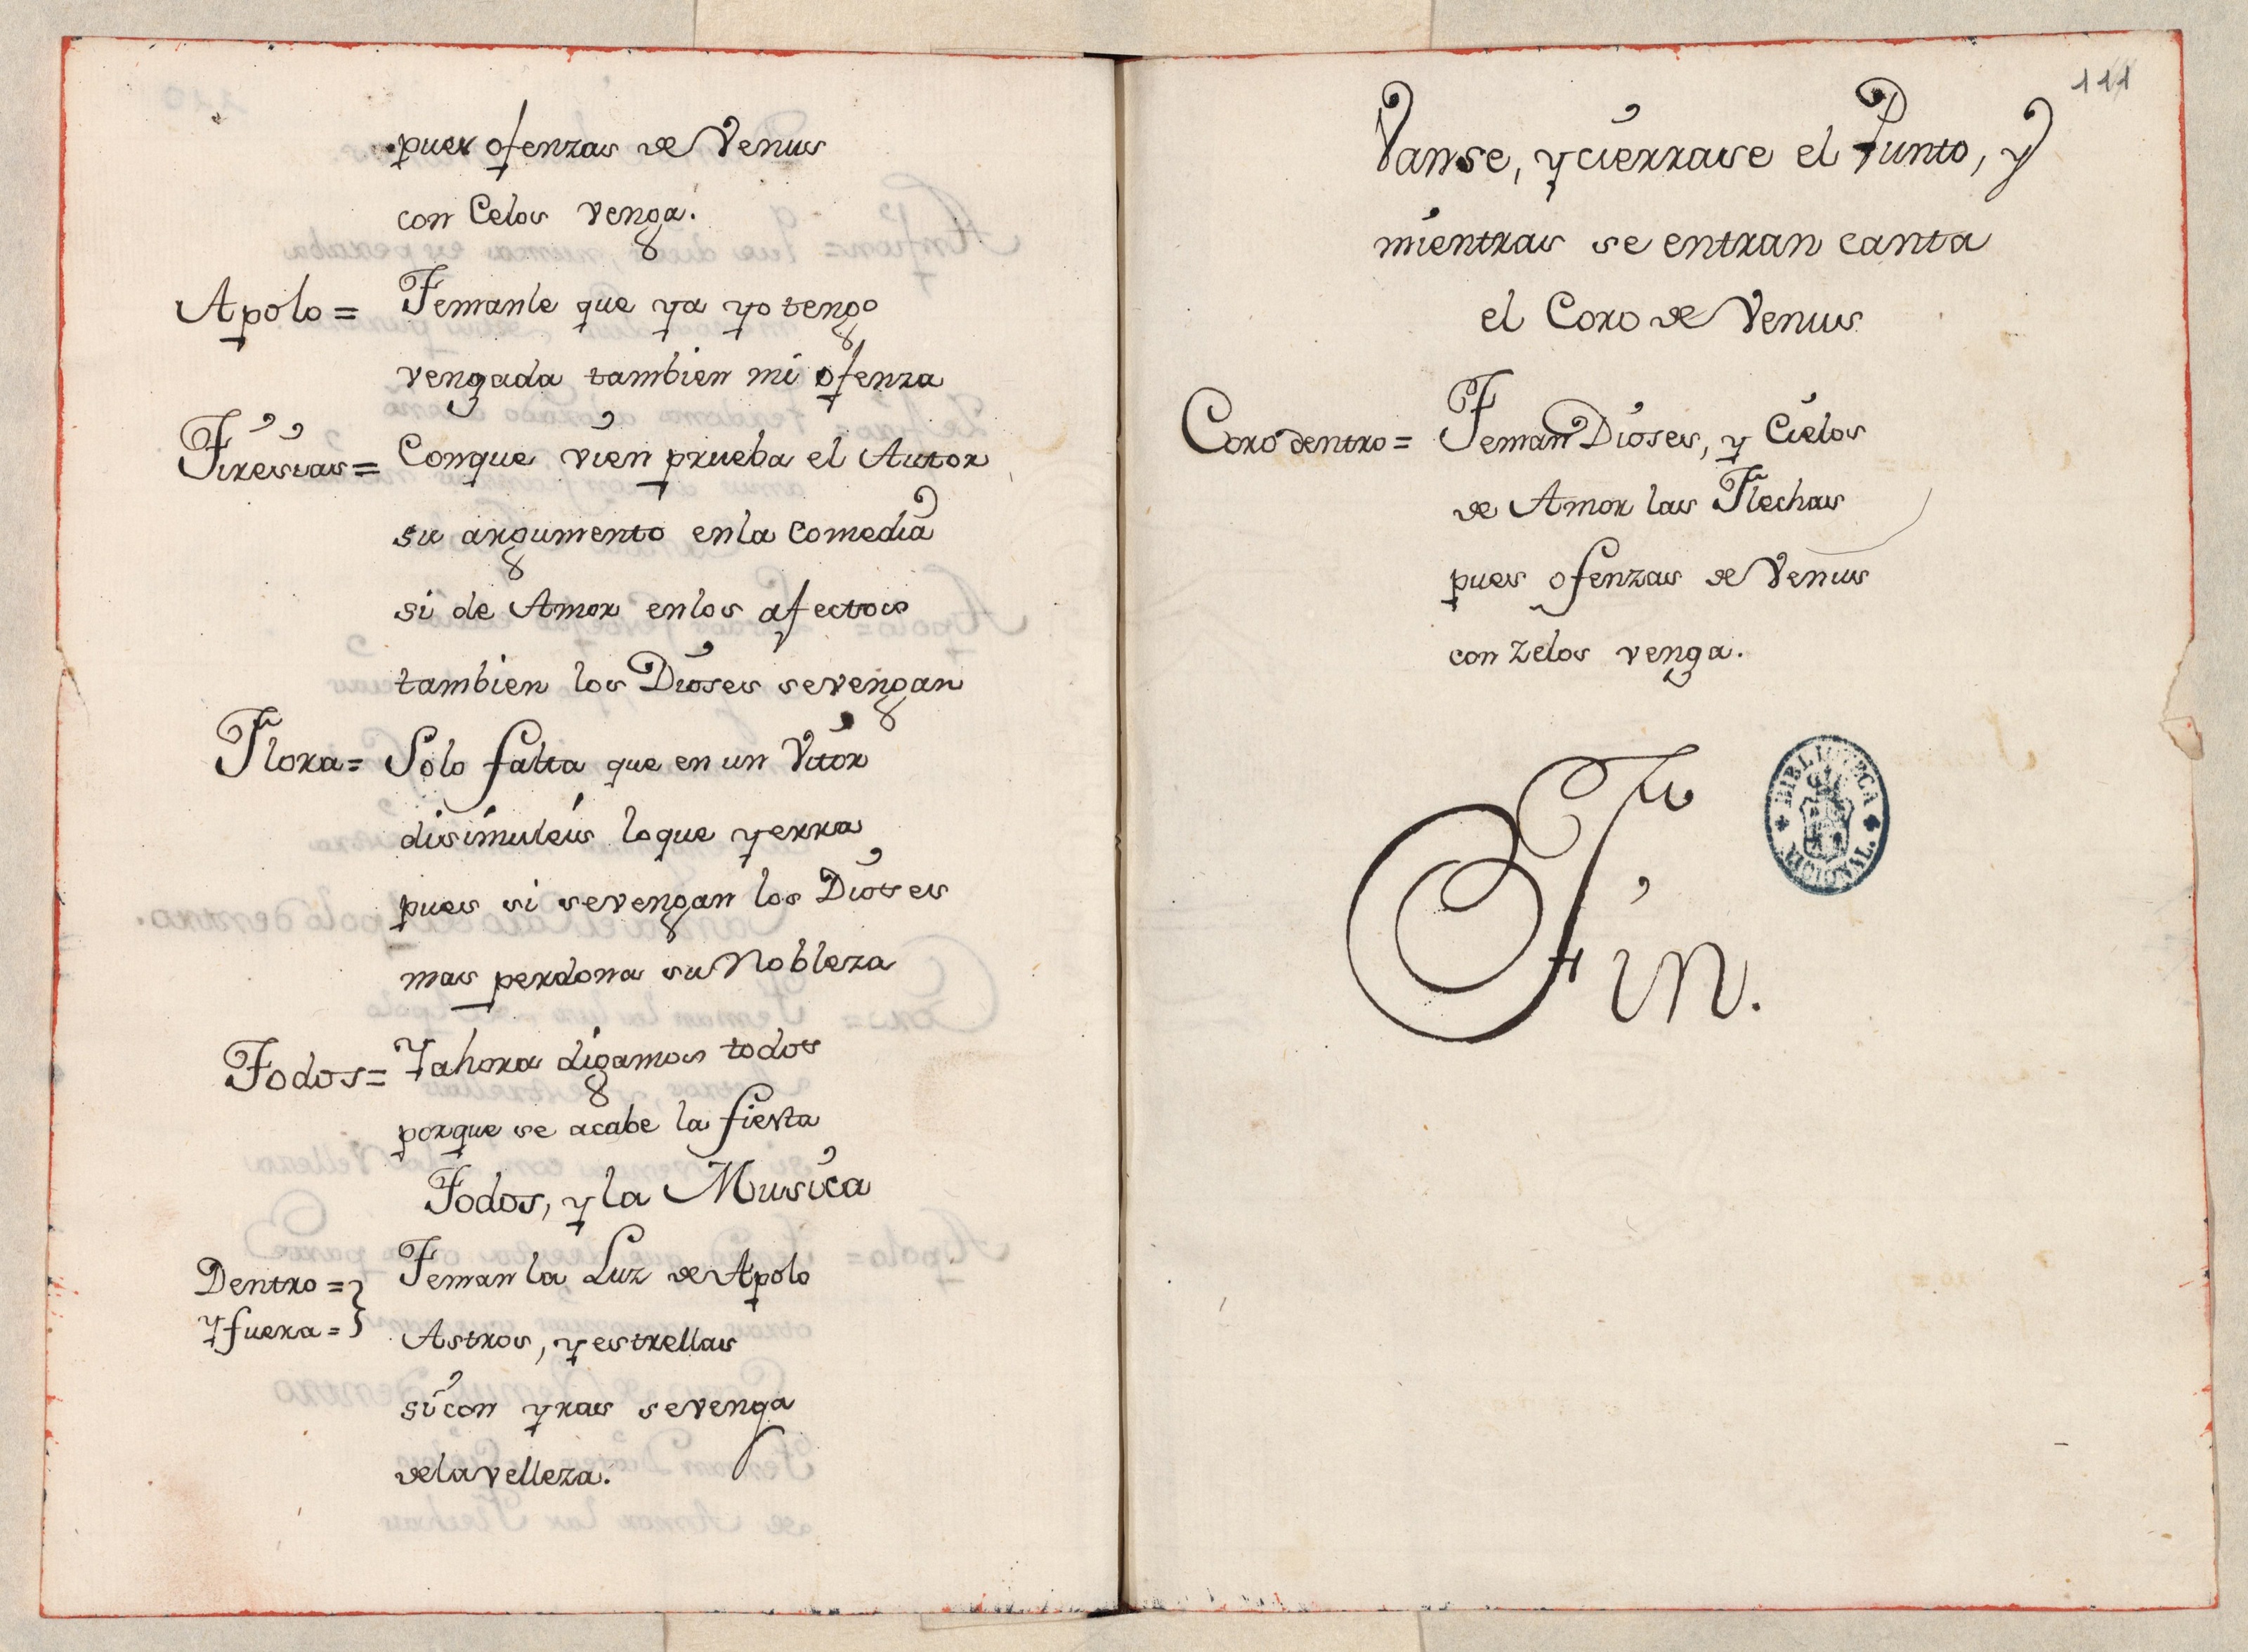 pues ofenzas de Venus
con Celos venga.
Apolo = Temanle que ya yo tengo
vengada tambien mi ofenza
Tiresias = Conque vien prueba el Autor
su argumento enla Comedia
si de Amor enlos afectos
tambien los Dioses sevengan
Flora = Solo falta que en un Vitor
disimuleis loque yerra
pues si sevengan los Dioses
mas perdona su Nobleza
Todos = Yahora digamos todos
porque se acabe la fiesta
Todos, y la Musica
Dentro = } Teman la Luz de Apolo
y fuera = } Astros, y estrellas
si con yras sevenga
dela velleza.
111
Vanse, y cierrase el Punto, y
mientras se entran canta
el Coro de Venus
Coro dentro = Teman Dioses, y Cielos
de Amor las Flechas
pues ofenzas de Venus
con Zelos venga.
Fin.
BIBLIOTECA NACIONAL.